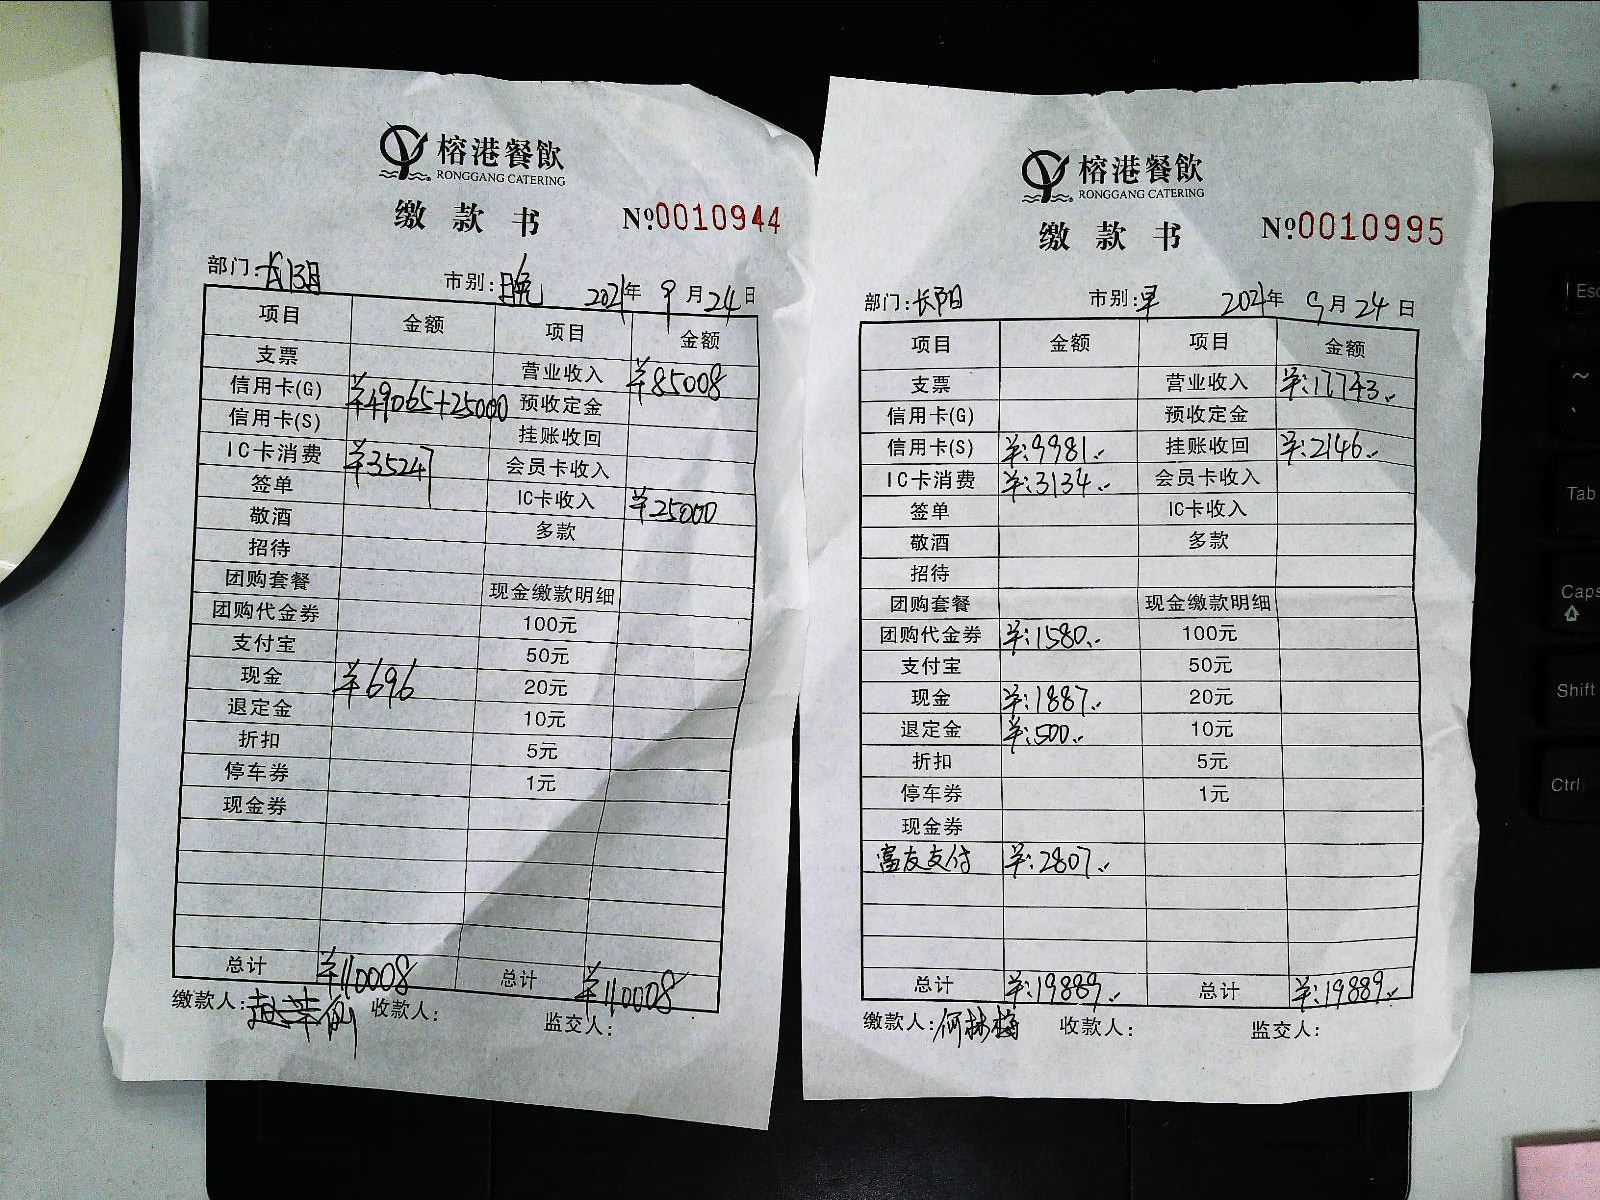 榕港餐飲
RONGGANG CATERING
缴款书 №0010944
部门: 长阳 市别: 晚 2021年 9月24日
项目 金额 项目 金额
支票 营业收入 ¥85008
信用卡(G) ¥49065+25000 预收定金
信用卡(S) 挂账收回
IC卡消费 ¥35247 会员卡收入
签单 IC卡收入 ¥25000
敬酒 多款
招待
团购套餐 现金缴款明细
团购代金券 100元
支付宝 50元
现金 ¥696 20元
退定金 10元
折扣 5元
停车券 1元
现金券
总计 ¥110008 总计 ¥110008
缴款人: 收款人: 监交人:
榕港餐飲
RONGGANG CATERING
缴款书 №0010995
部门: 长阳 市别: 早 2021年 9月24日
项目 金额 项目 金额
支票 营业收入 ¥:17743.
信用卡(G) 预收定金
信用卡(S) ¥:9981. 挂账收回 ¥:2146.
IC卡消费 ¥:3134. 会员卡收入
签单 IC卡收入
敬酒 多款
招待
团购套餐 现金缴款明细
团购代金券 ¥:1580. 100元
支付宝 50元
现金 ¥:1887. 20元
退定金 ¥:500. 10元
折扣 5元
停车券 1元
现金券
富友支付 ¥:2807.
总计 ¥:19889. 总计 ¥:19889.
缴款人: 何林梅 收款人: 监交人:
Esc
~
Tab
Caps
Shift
Ctrl